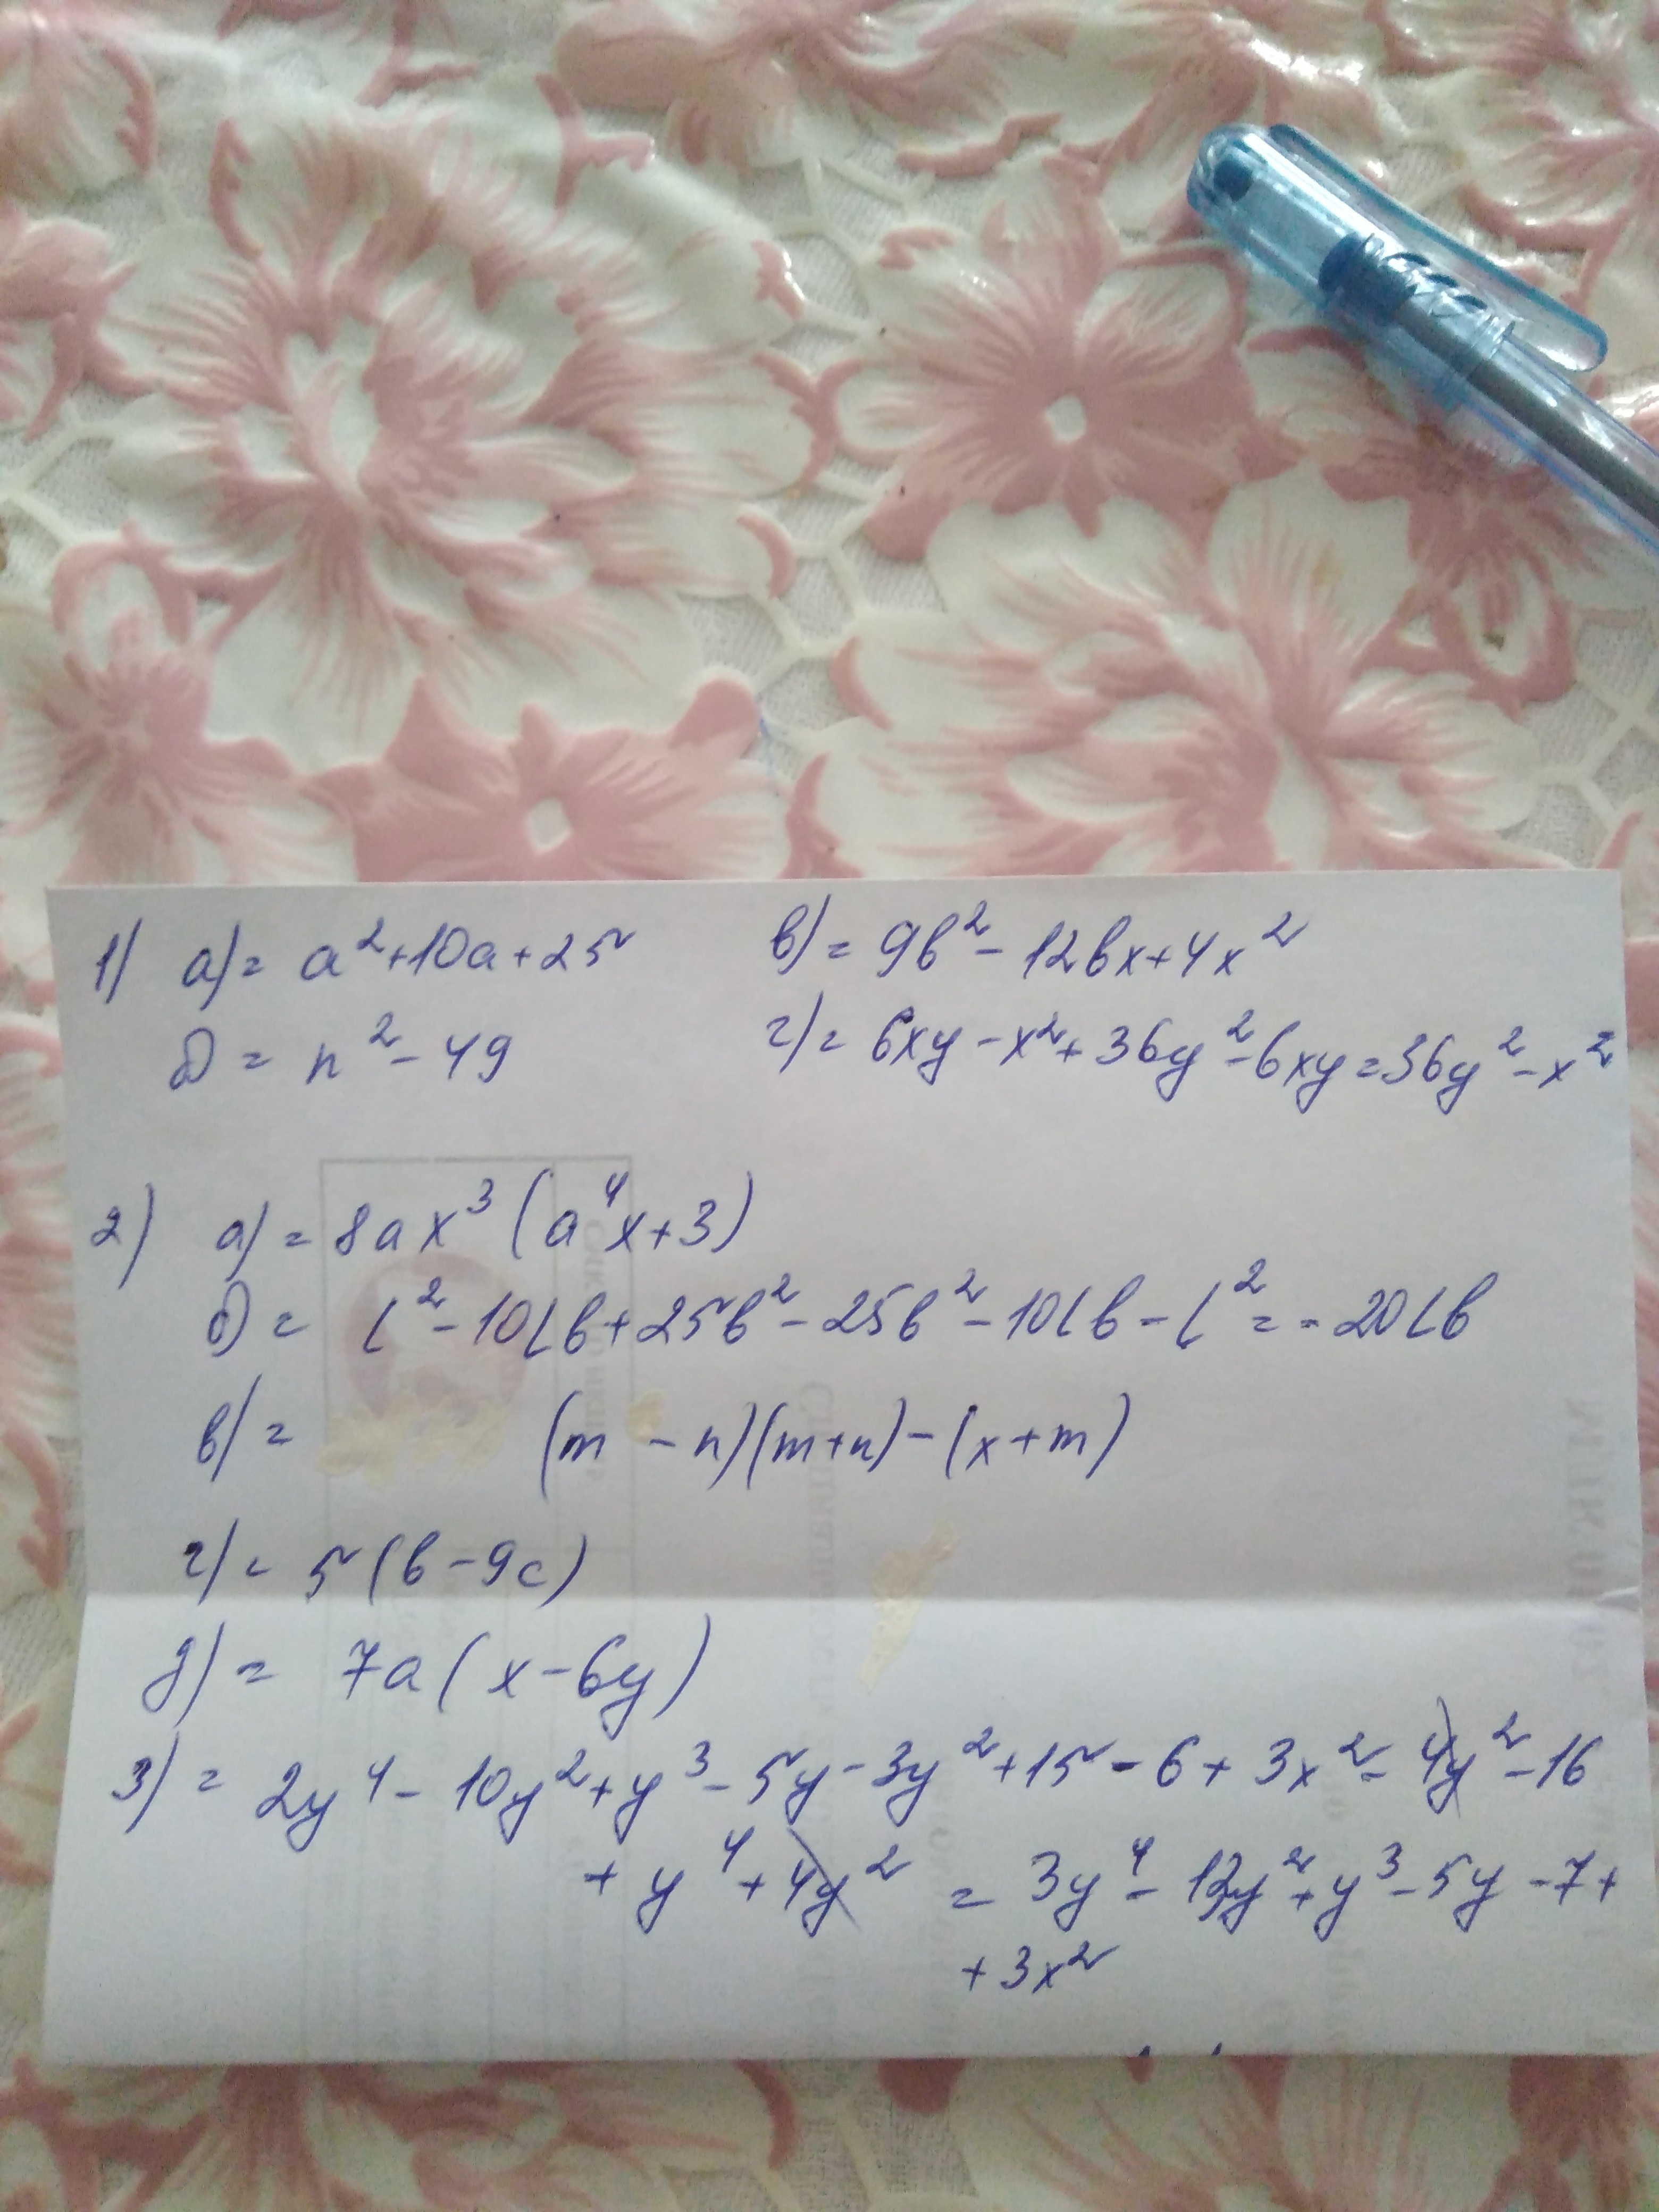 1) а) = a²+10a+25 в) = 9b² - 12bx+4x²
б) = n² - 49 г) = 6xy - x² + 36y² - 6xy = 36y² - x²
2) а) = 8ax³ (a⁴x+3)
б) = c² - 10cb + 25b² - 25b² - 10cb - c² = - 20cb
в) = (m - n)(m+n) - (x+m)
г) = 5(b - 9c)
д) = 7a(x - 6y)
3) = 2y⁴ - 10y² + y³ - 5y - 3y² + 15 - 6 + 3x² - 4y² - 16
+ y⁴ + 4y² = 3y⁴ - 13y² + y³ - 5y - 7 +
+ 3x²